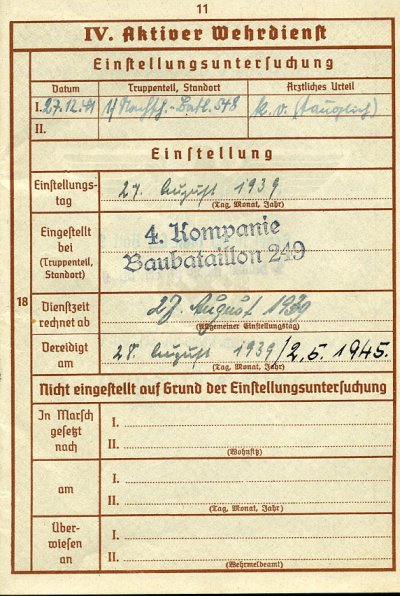 11
IV. Aktiver Wehrdienst
Einstellungsuntersuchung
Datum Truppenteil, Standort Ärztliches Urteil
I. 27.12.41 1/ Nachsch.-Batl. 548 k. v. (tauglich)
II.
Einstellung
Einstellungs-
tag
27. August 1939
(Tag, Monat, Jahr)
Eingestellt
bei
(Truppenteil,
Standort)
4. Kompanie
Baubataillon 249
18
Dienstzeit
rechnet ab
27. August 1939
(Allgemeiner Einstellungstag)
Vereidigt
am
28. August 1939 / 2.5.1945.
(Tag, Monat, Jahr)
Nicht eingestellt auf Grund der Einstellungsuntersuchung
In Marsch
gesetzt
nach
I.
II.
(Wohnsitz)
am
I.
II.
(Tag, Monat, Jahr)
Über-
wiesen
an
I.
II.
(Wehrmeldeamt)